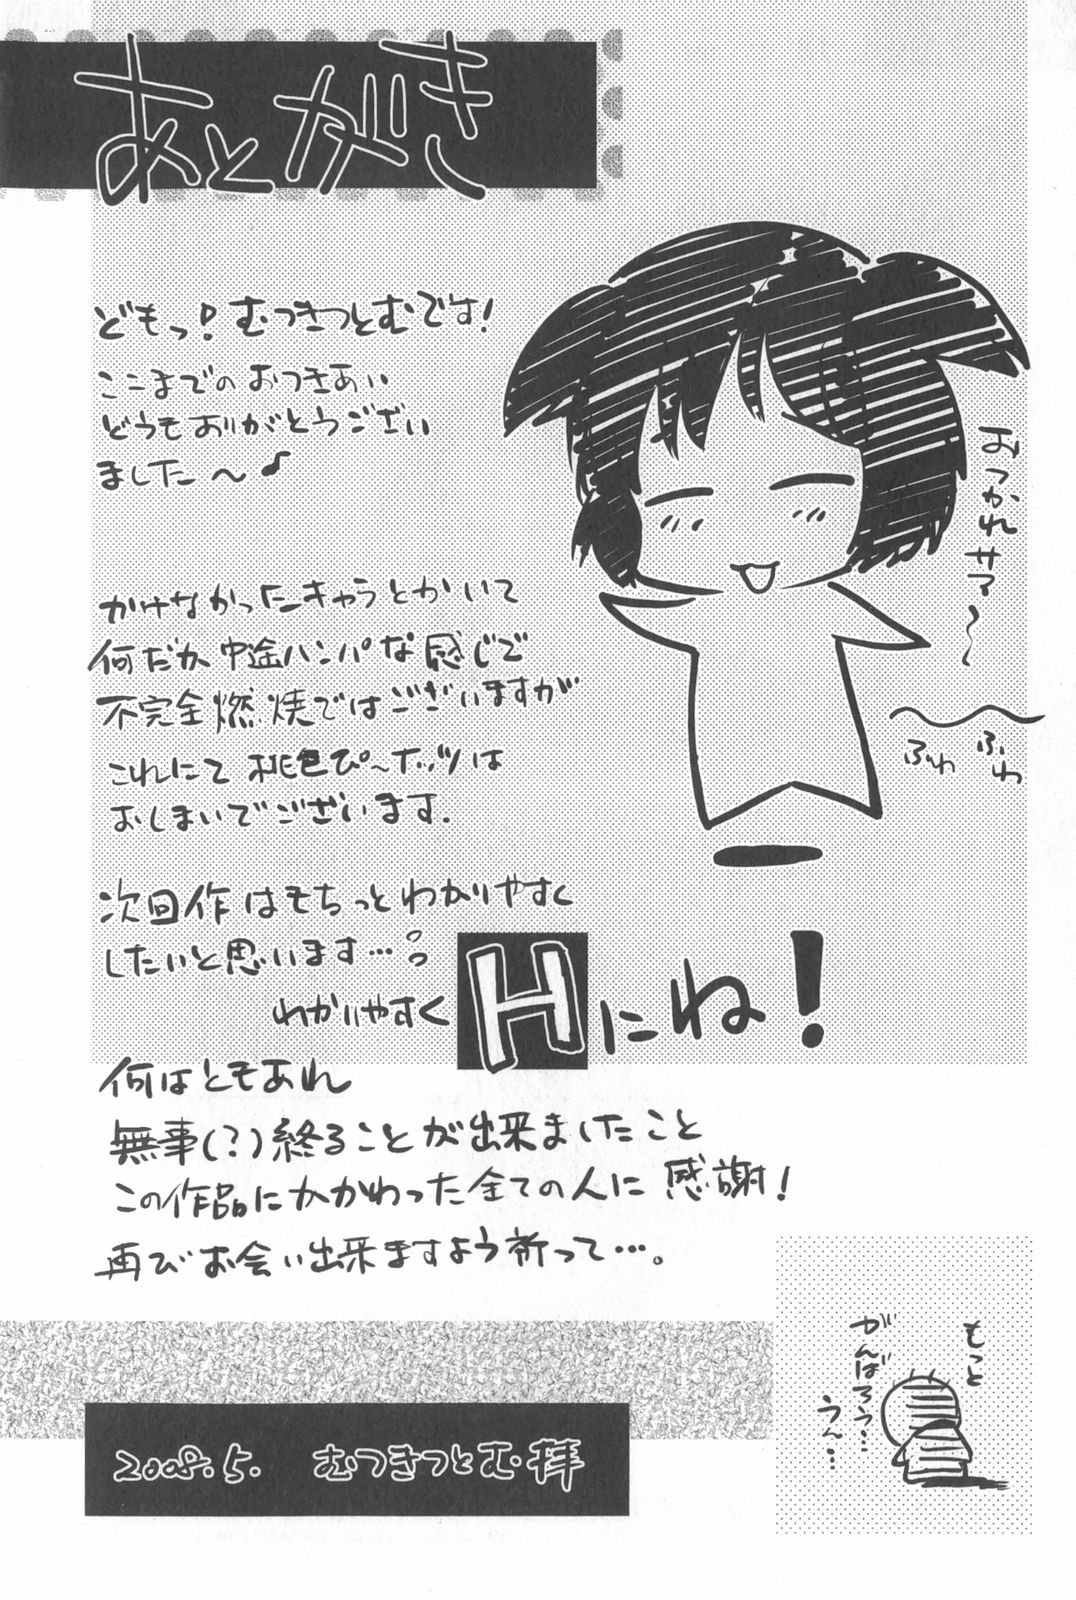 あとがき
どもっ!むつきつとむです!
ここまでのおつきあい
どうもありがとうござい
ました〜♪
おつかれサマ〜
かけなかったキャラとかいて
何だか中途ハンパな感じで
不完全燃焼ではございますが
これにて桃色ぴ〜ホッツは
おしまいでございます.
ふわ
ふわ
次回作はもちっとわかりやすく
したいと思います…
わかりやすくHにね!
何はともあれ
無事(?)終ることが出来ましたこと
この作品にかかわった全ての人に感謝!
再びお会い出来ますよう祈って…。
もっと
がんばろう…
うん…
2008.5. むつきつとむ拝